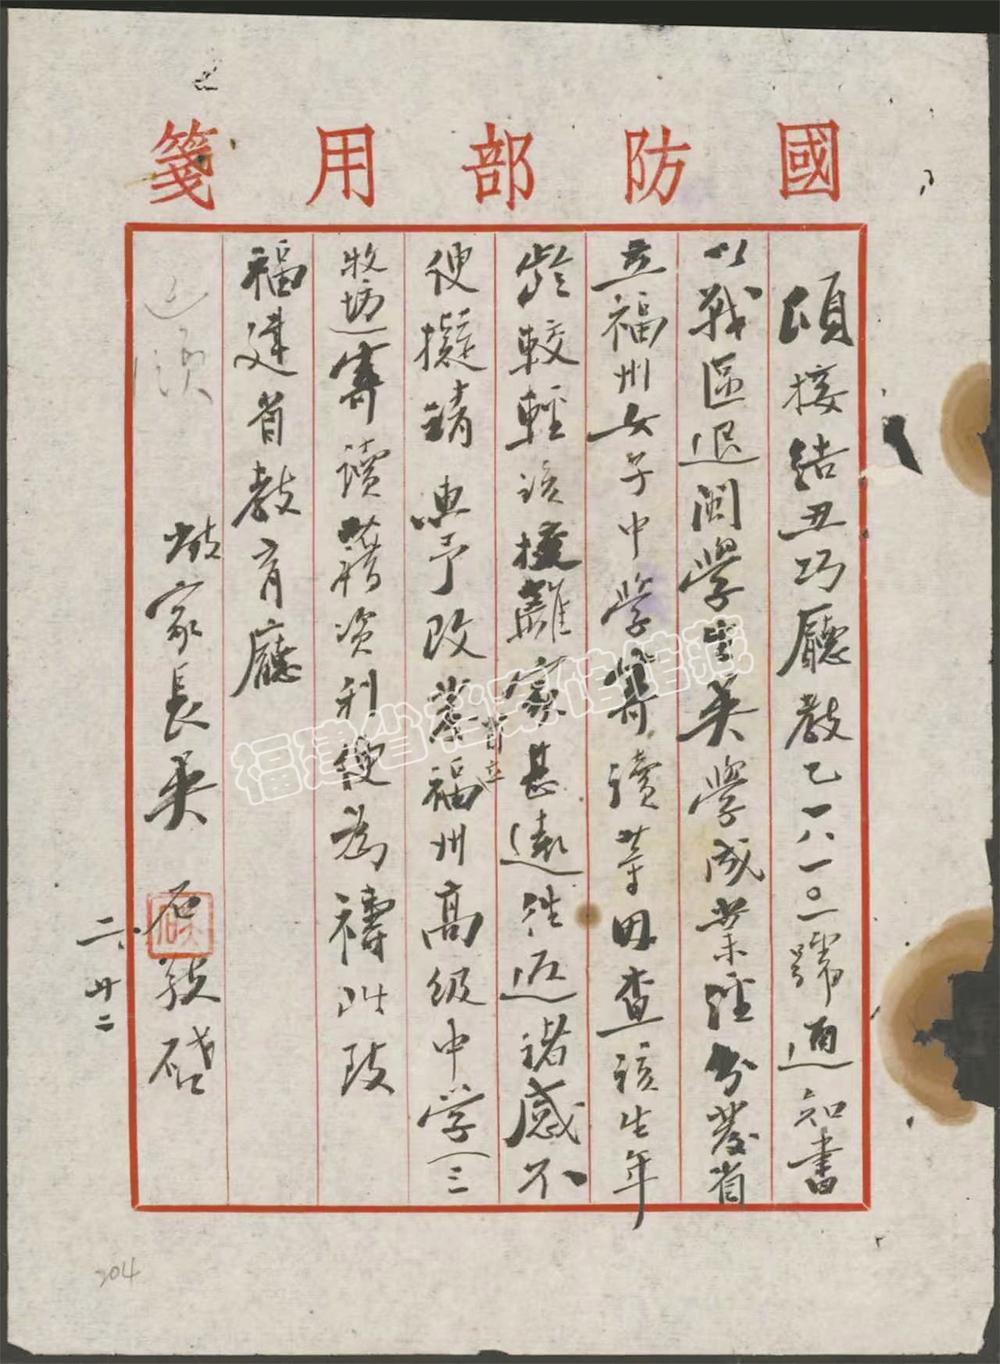 國防部用箋
頃接結丑巧廳教乙一八一〇一號通知書
以戰區退閩學生吳學成業經分發省
立福州女子中學寄讀等因查該生年
齡較輕該校離家甚遠往返諸感不
便擬請惠予改發省立福州高級中學(三
牧坊)寄讀藉資利便為禱此致
福建省教育廳
學生家長吳石敬啓
二、廿二
福建省档案馆馆藏
204